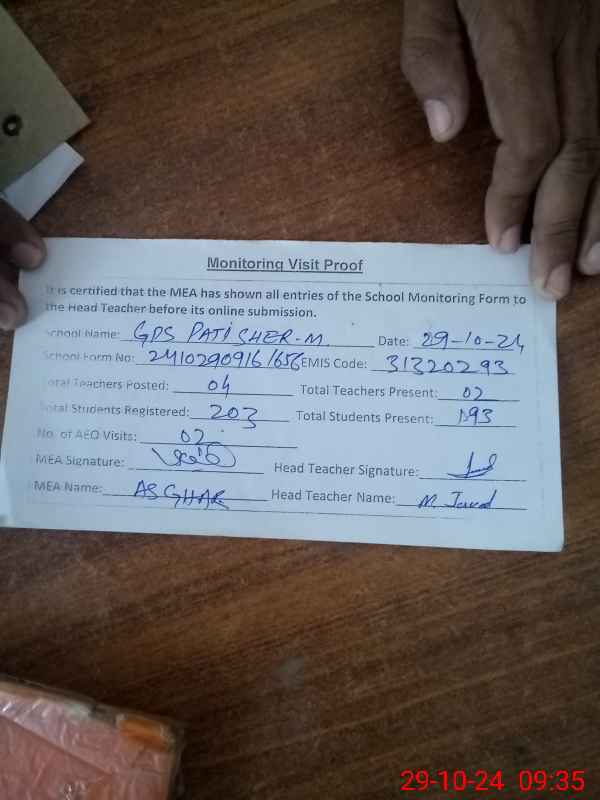 Monitoring Visit Proof
It is certified that the MEA has shown all entries of the School Monitoring Form to
the Head Teacher before its online submission.
School Name: GPS PATI SHER-M. Date: 29-10-24
School Form No: 24102909161656 EMIS Code: 31320293
Total Teachers Posted: 04 Total Teachers Present: 02
Total Students Registered: 203 Total Students Present: 193
No. of AEO Visits: 02
MEA Signature: Head Teacher Signature:
MEA Name: ASGHAR Head Teacher Name: M. Javed
29-10-24 09:35